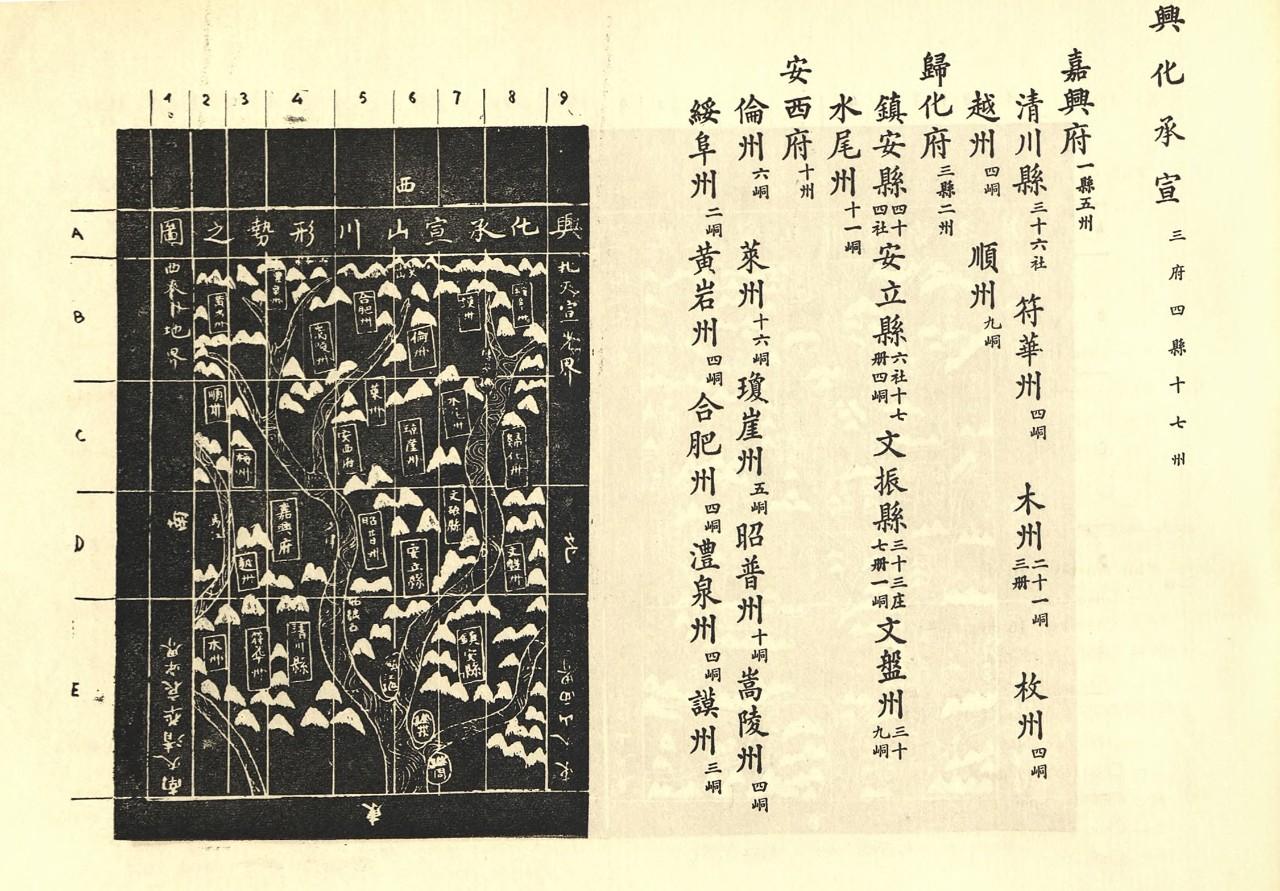 興化承宣 三府四縣十七州
嘉興府 一縣五州
清川縣 三十六社 符華州 四峒 木州 二十一峒三册 枚州 四峒
越州 四峒 順州 九峒
歸化府 三縣二州
鎮安縣 四十四社 安立縣 六社十七册四峒 文振縣 三十三庄七册一峒 文盤州 三十九峒
水尾州 十一峒
安西府 十州
倫州 六峒 萊州 十六峒 瓊崖州 五峒 昭普州 十峒 嵩陵州 四峒
綏阜州 二峒 黃岩州 四峒 合肥州 四峒 澧泉州 四峒 謨州 三峒
1 2 3 4 5 6 7 8 9
西
興化承宣山川形勢之圖
A
B
C
D
E
合肥州
倫州
順州
萊州
安西府
瓊崖州
歸化州
梅州
嘉興府
馬江
昭晋州
安立縣
文振縣
文盤州
越州
木州
符華州
清川縣
鎮安縣
東